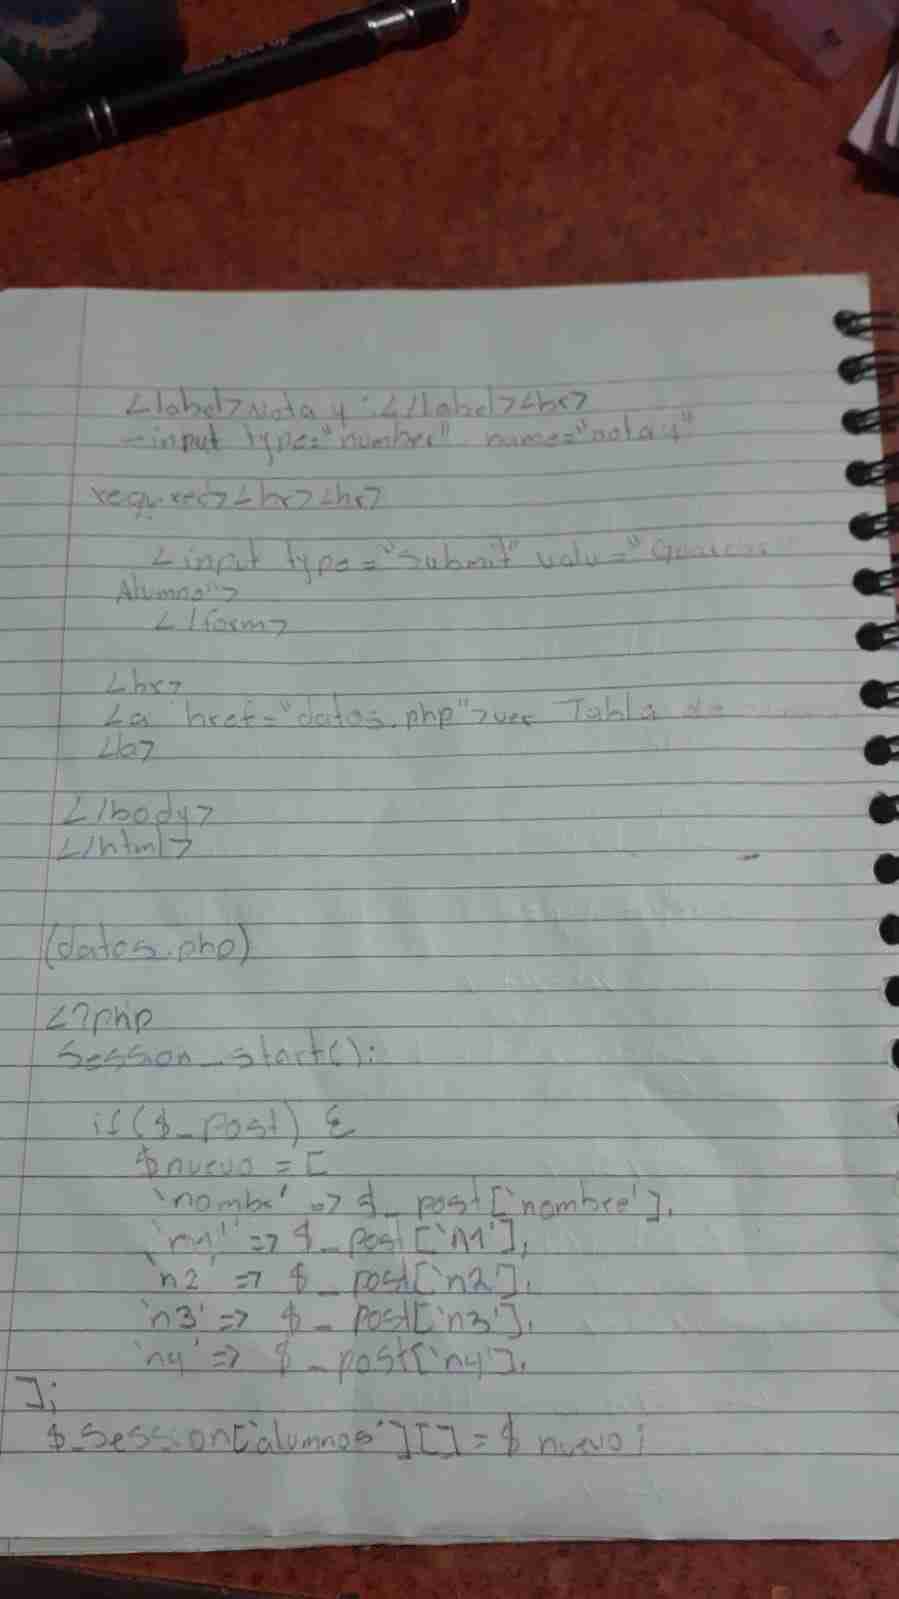 <label>Nota 4:</label><br>
input type="number" name="nota4"
required><br><br>
<input type="submit" valu="Guardar
Alumno">
</form>
<br>
<a href="datos.php">ver Tabla de
<b>
</body>
</html>
(datos.php)
<?php
Session_start();
if($_post) {
$nuevo = [
'nombr' => $_post['nombre'],
'n1' => $_post['n1'],
'n2' => $_post['n2'],
'n3' => $_post['n3'],
'n4' => $_post['n4'],
];
$_Session['alumnos'][] = $nuevo;